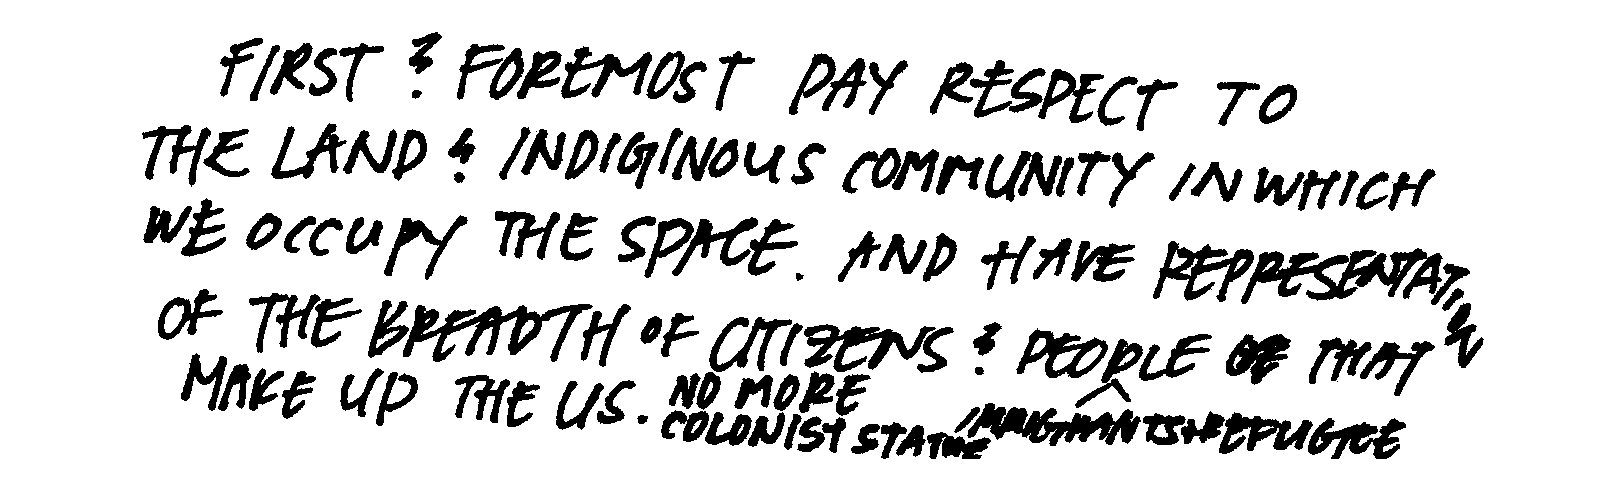 FIRST & FOREMOST PAY RESPECT TO
THE LAND & INDIGINOUS COMMUNITY IN WHICH
WE OCCUPY THE SPACE. AND HAVE REPRESENTATION
OF THE BREADTH OF CITIZENS & PEOPLE THAT
MAKE UP THE US. NO MORE
COLONIST STATUE
IMMIGRANTS + REFUGEE